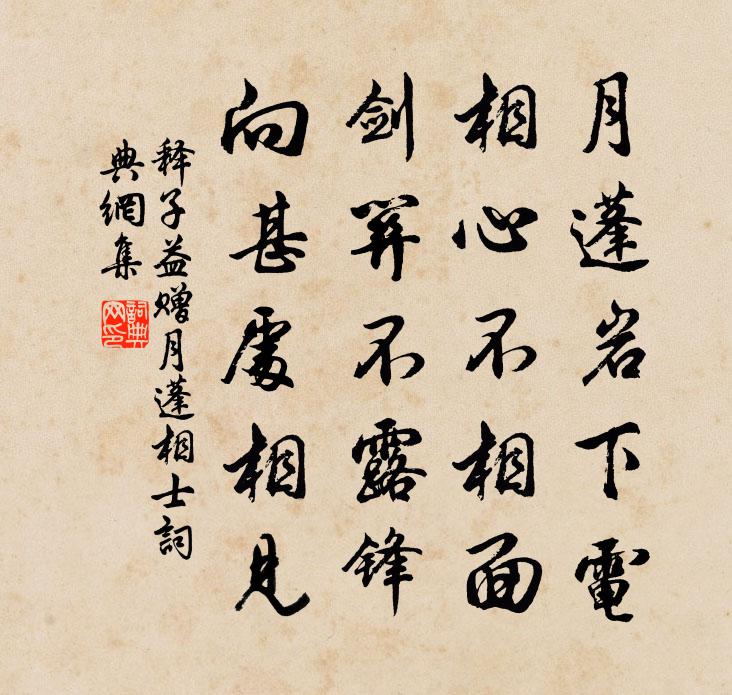 月蓬岩下電
相心不相面
剑笄不露鋒
向甚處相見
释子益贈月蓬相士詞
典網集
詞典网印